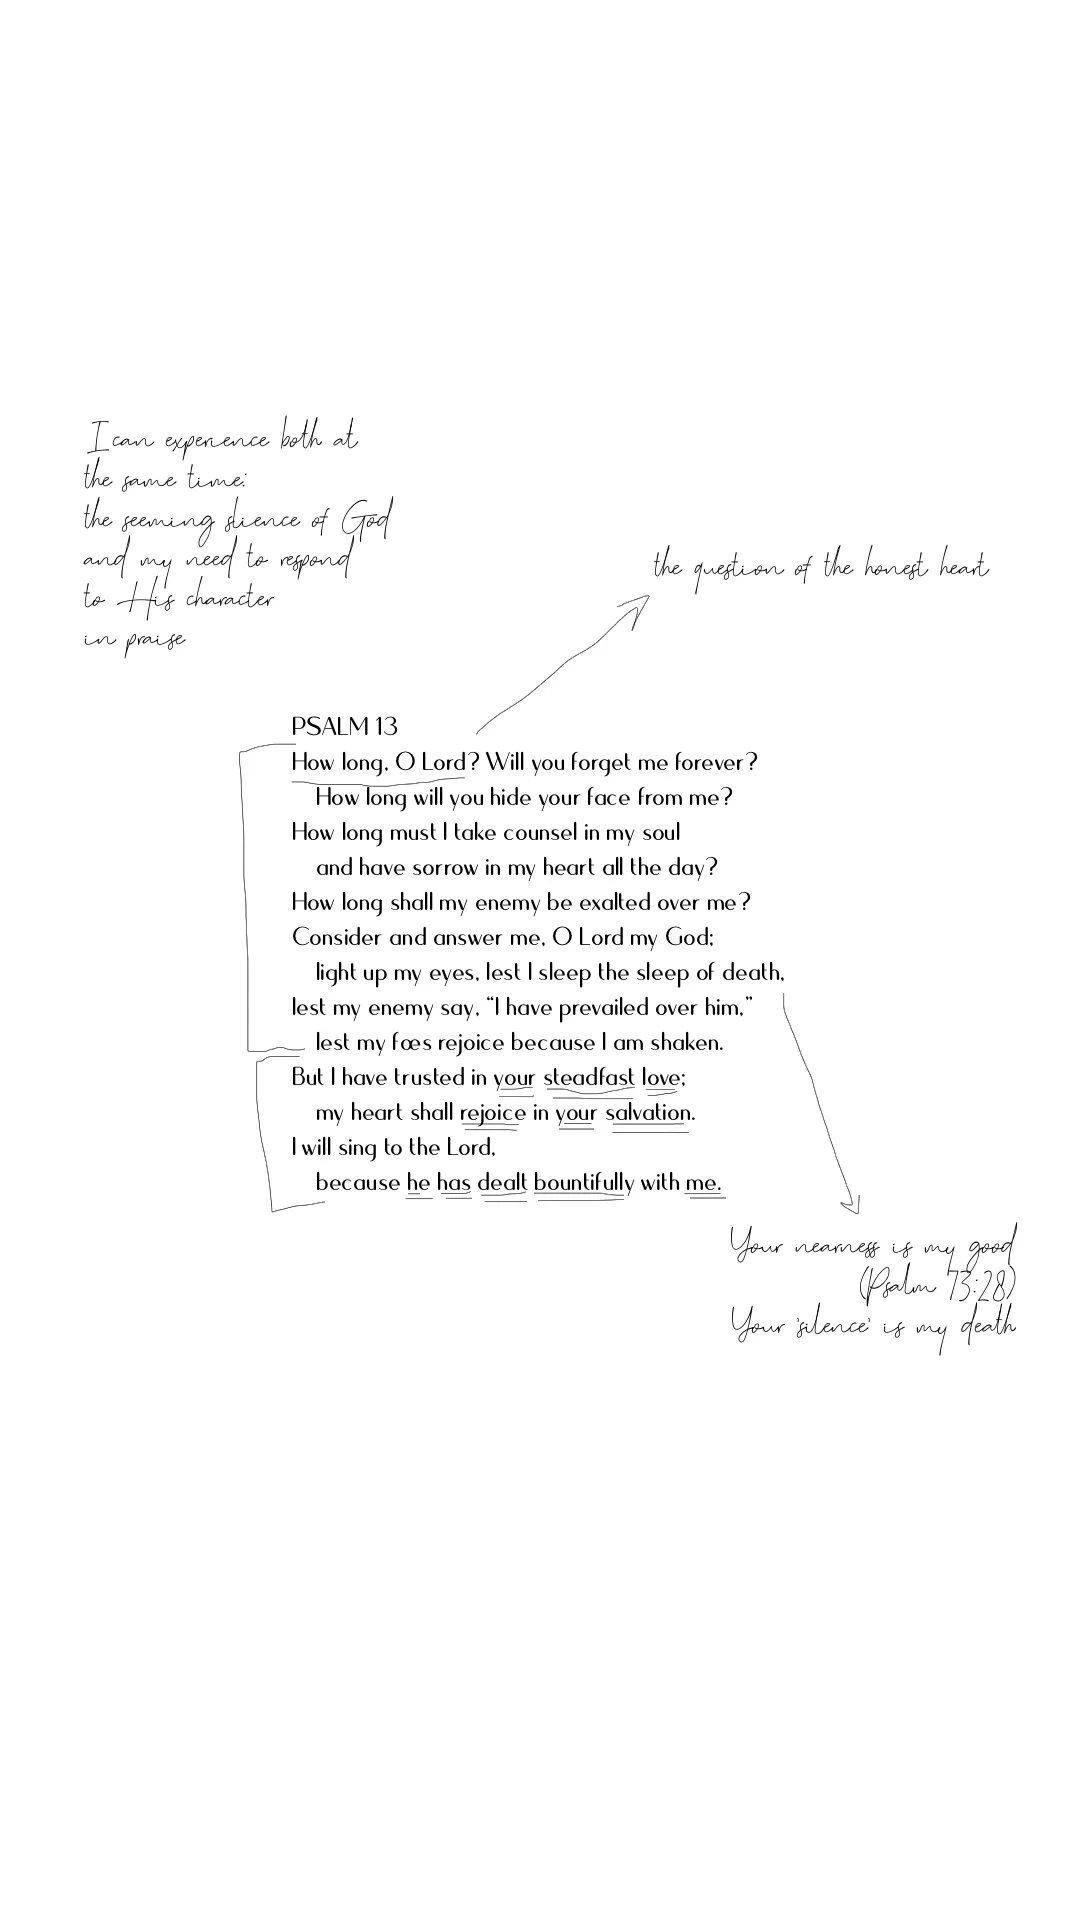 I can experience both at
the same time:
the seeming silence of God
and my need to respond
to His character
in praise
the question of the honest heart
PSALM 13
How long, O Lord? Will you forget me forever?
How long will you hide your face from me?
How long must I take counsel in my soul
and have sorrow in my heart all the day?
How long shall my enemy be exalted over me?
Consider and answer me, O Lord my God;
light up my eyes, lest I sleep the sleep of death,
lest my enemy say, “I have prevailed over him,”
lest my foes rejoice because I am shaken.
But I have trusted in your steadfast love;
my heart shall rejoice in your salvation.
I will sing to the Lord,
because he has dealt bountifully with me.
Your nearness is my good
(Psalm 73:28)
Your 'silence' is my death